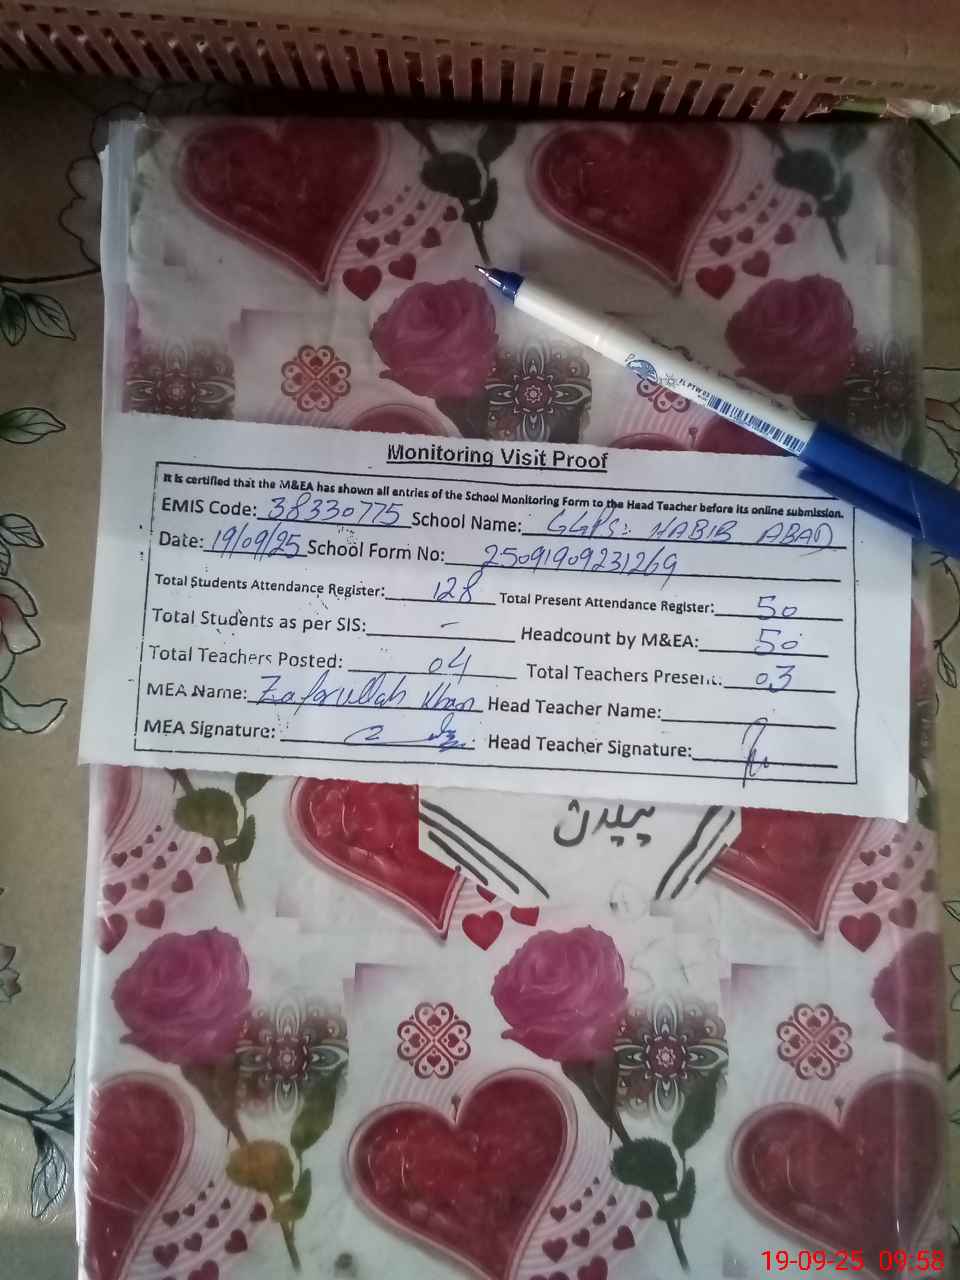 Monitoring Visit Proof
It is certified that the M&EA has shown all entries of the School Monitoring Form to the Head Teacher before its online submission.
EMIS Code: 38330775 School Name: GGPS: HABIB ABAD
Date: 19/09/25 School Form No: 25091909231269
Total Students Attendance Register: 128 Total Present Attendance Register: 50
Total Students as per SIS: - Headcount by M&EA: 50
Total Teachers Posted: 04 Total Teachers Present: 03
MEA Name: Zafarullah Khan Head Teacher Name:
MEA Signature: Head Teacher Signature:
19-09-25 09:58